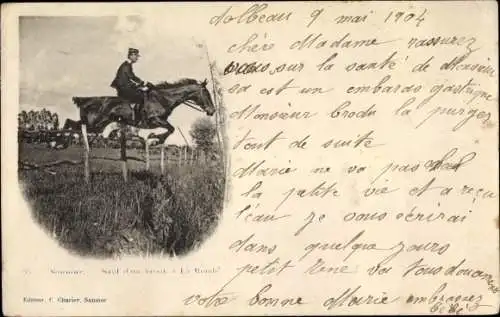 Dolbeau 9 mai 1904
chère Madame rassurez
vous sur la santé de
sa est un embaras gastrique
Monsieur Brodu la purger
tout de suite
Marie ne va pas mal
la petite vie et a reçu
l'eau je vous écrirai
dans quelque jours
petit René va tous doucement
votre bonne Marie embrassez
bébé
Saumur. Saut d'un
Editeur, C. Charier, Saumur